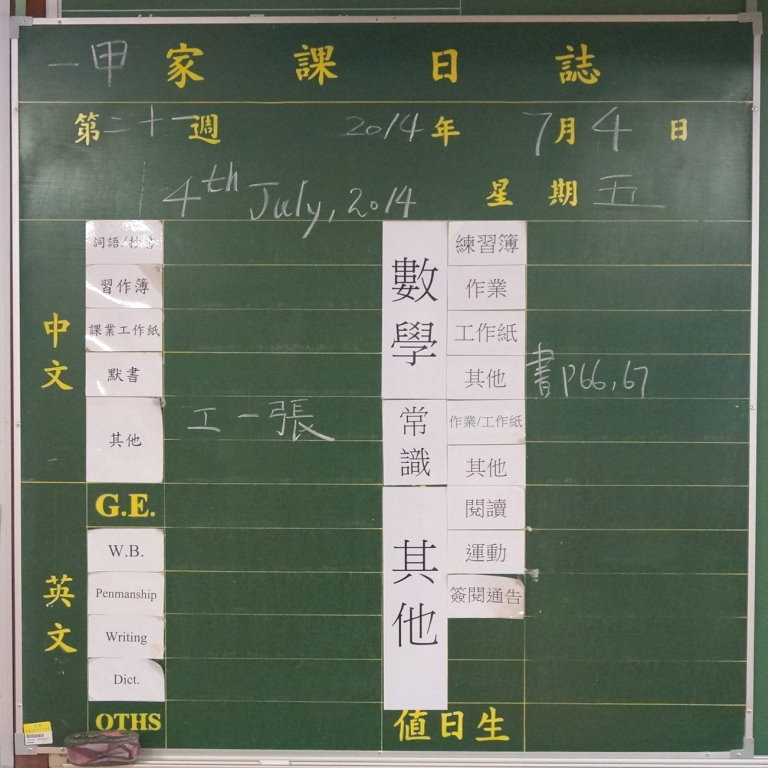 一甲 家課日誌
第二十一週 2014年 7月4日
4th July, 2014 星期五
中文
詞語/抄書
習作簿
課業工作紙
默書
其他 工一張
英文
G.E.
W.B.
Penmanship
Writing
Dict.
OTHS
數學
練習簿
作業
工作紙
其他 書P66,67
常識
作業/工作紙
其他
其他
閱讀
運動
簽閱通告
值日生